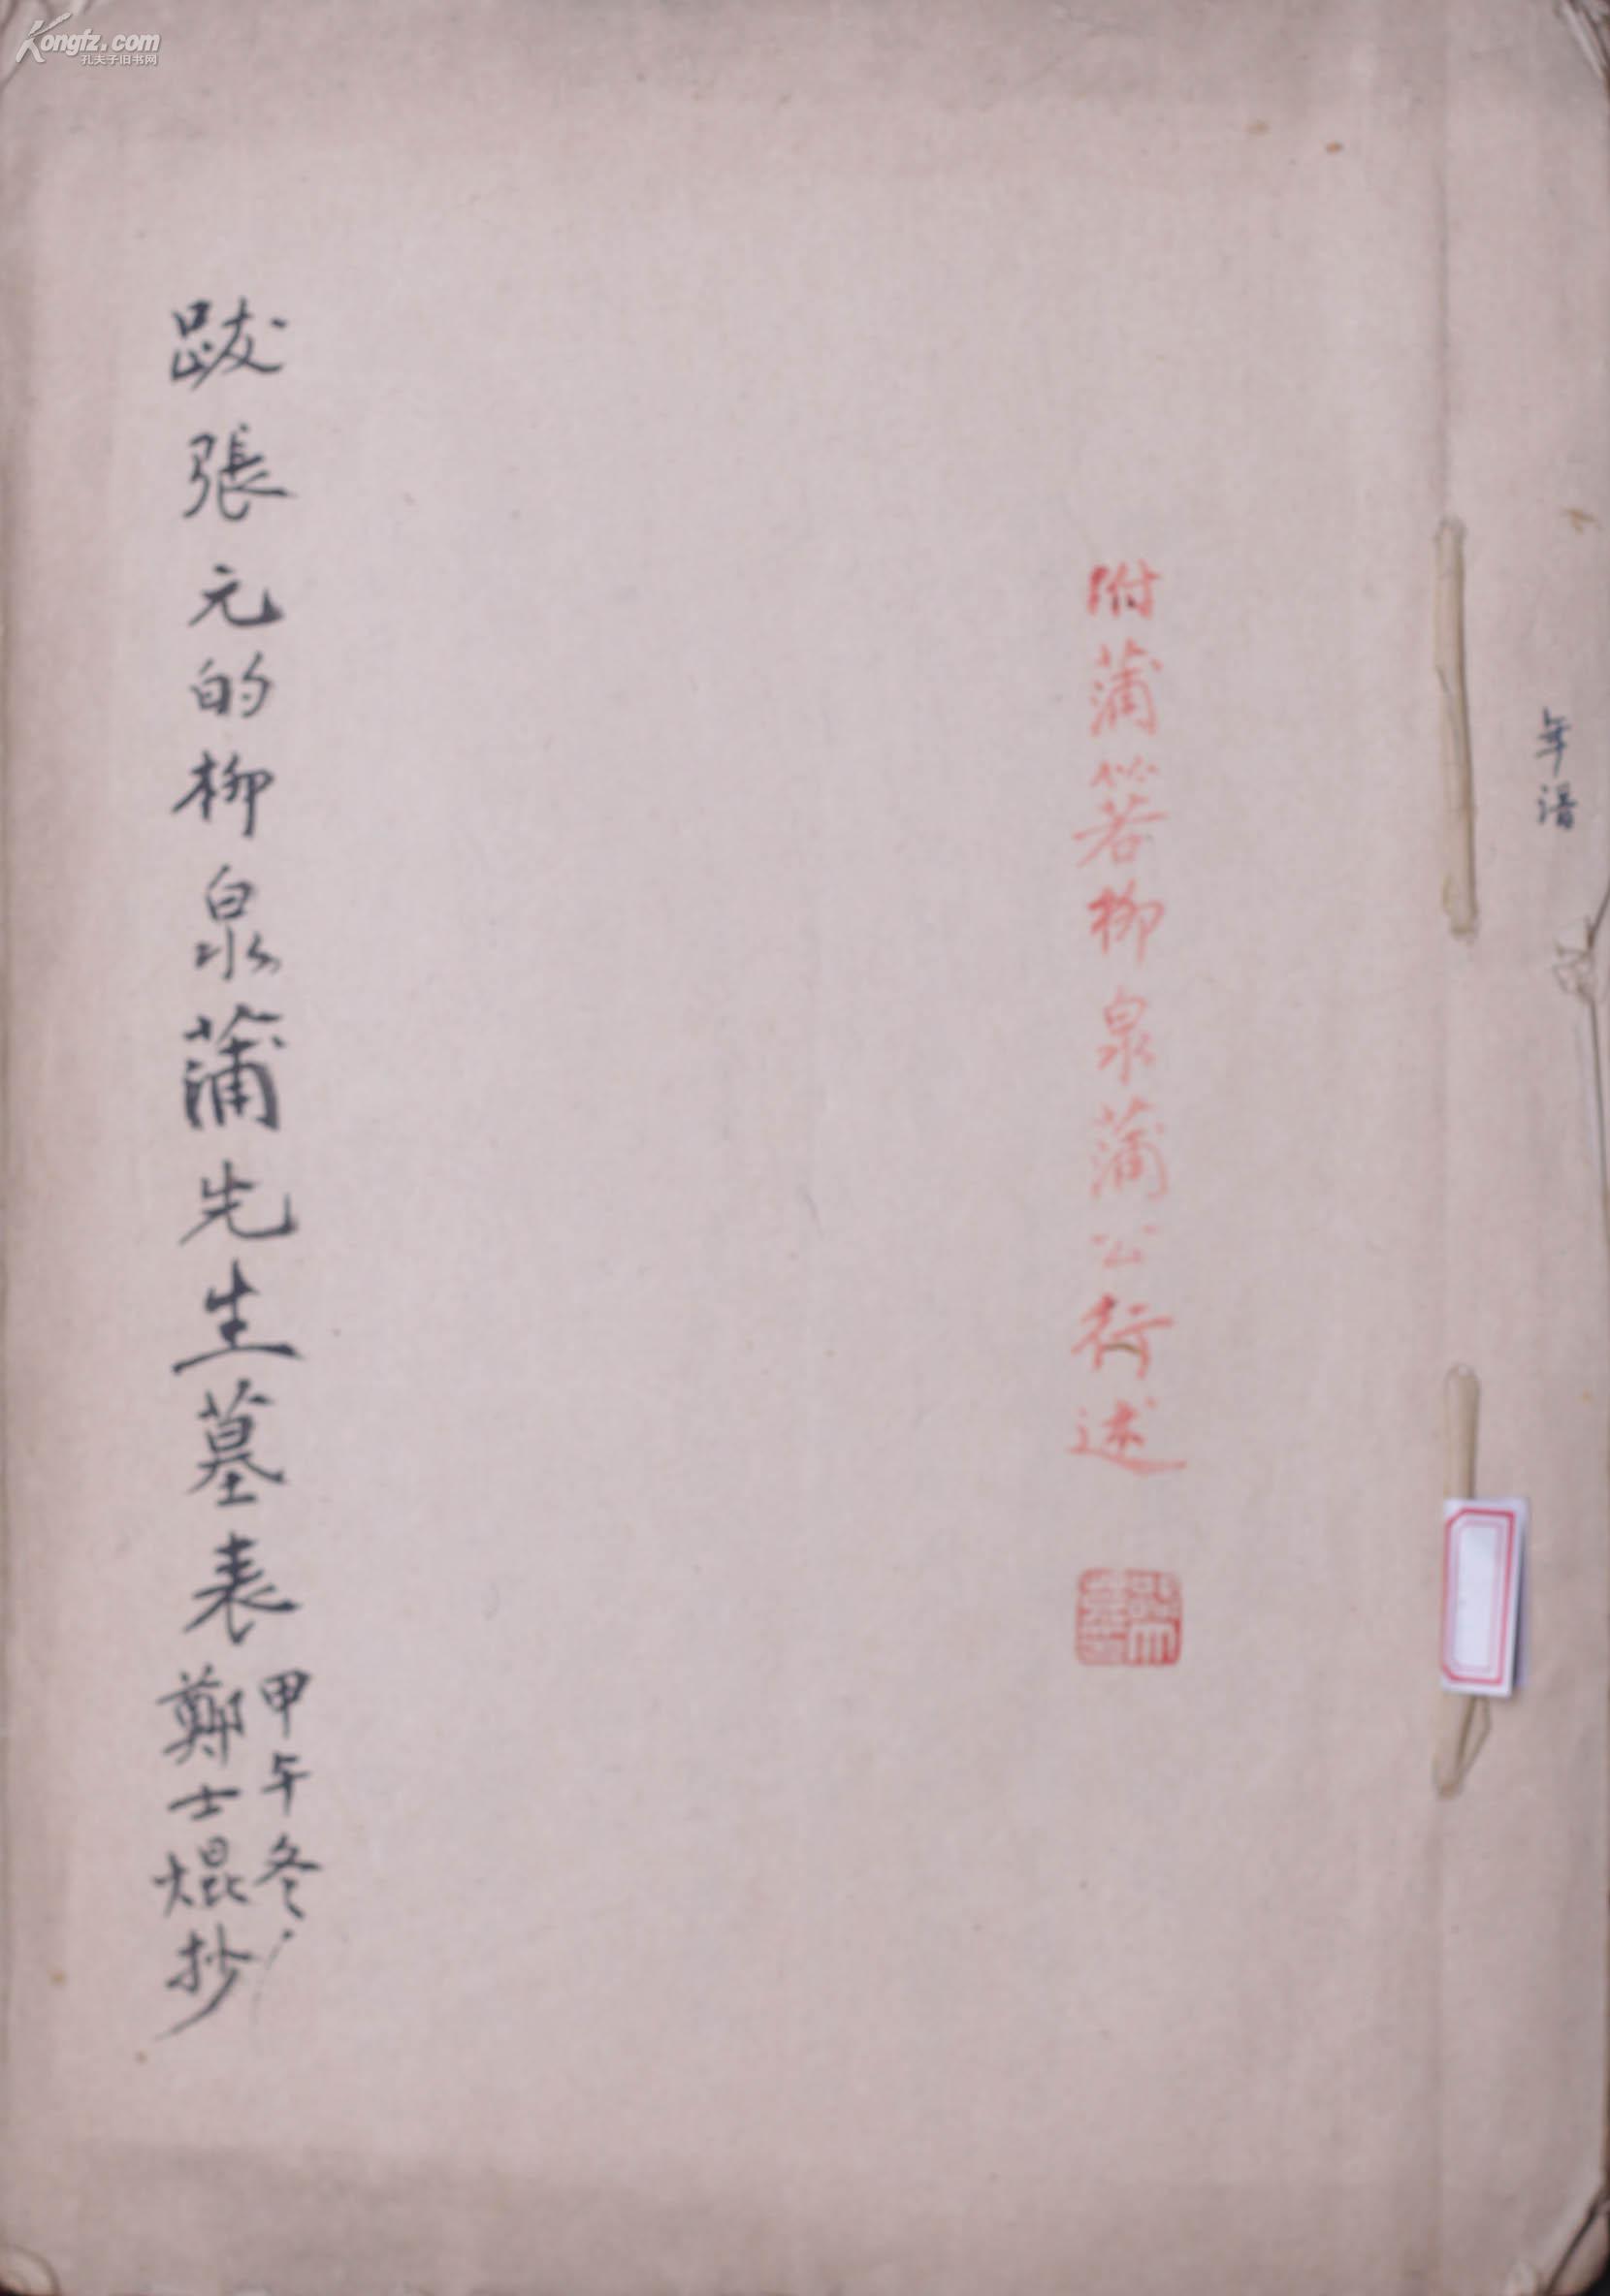 Kongfz.com
孔夫子旧书网
年谱
附蒲箬柳泉蒲公行述
跋張元的柳泉蒲先生墓表
甲午冬
鄭士焜抄